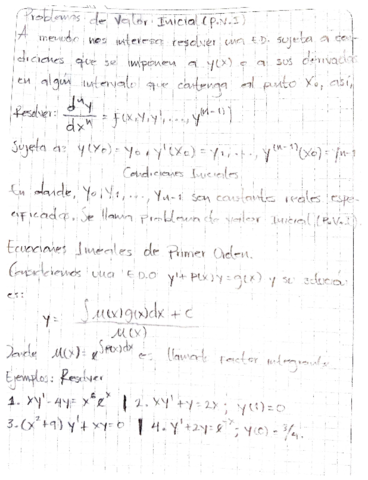 Problemas de Valor Inicial (P.V.I)
A menudo nos interesa resolver una E.D. sujeta a condiciones que se imponen a y(x) o a sus derivadas
en algún intervalo que contenga al punto x₀, así,
Resolver: dⁿy/dxⁿ = f(x,y,y',...,y⁽ⁿ⁻¹⁾)
Sujeta a: y(x₀)=y₀, y'(x₀)=y₁,..., y⁽ⁿ⁻¹⁾(x₀)=yₙ₋₁
Condiciones Iniciales
En donde, y₀, y₁, ..., yₙ₋₁ son constantes reales especificadas. Se llama problema de valor Inicial (P.V.I.)
Ecuaciones lineales de Primer Orden.
Consideremos una E.D.O y'+P(x)y=g(x) y su solución
es:
y = ∫ M(x)g(x)dx + C / M(x)
Donde M(x)= e^∫P(x)dx es llamado factor integrante
Ejemplos: Resolver
1. xy'-4y= x⁶eˣ | 2. xy'+y=2x; y(1)=0
3. (x²+9)y'+xy=0 | 4. y'+2y=e⁻ˣ; y(0)=3/4.